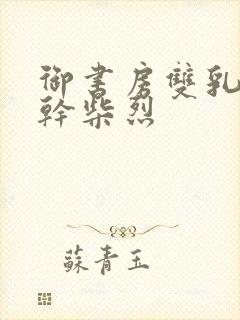 御書房雙乳
幹柴烈
蘇青玉